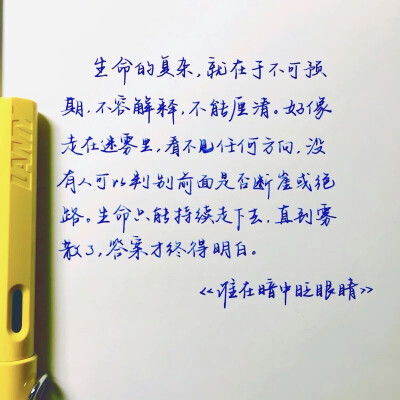 生命的复杂，就在于不可预
期，不容解释，不能厘清。好像
走在迷雾里，看不见任何方向，没
有人可以判别前面是否断崖或绝
路。生命只能持续走下去，直到雾
散了，答案才终得明白。
<<谁在暗中眨眼睛>>
LAMY